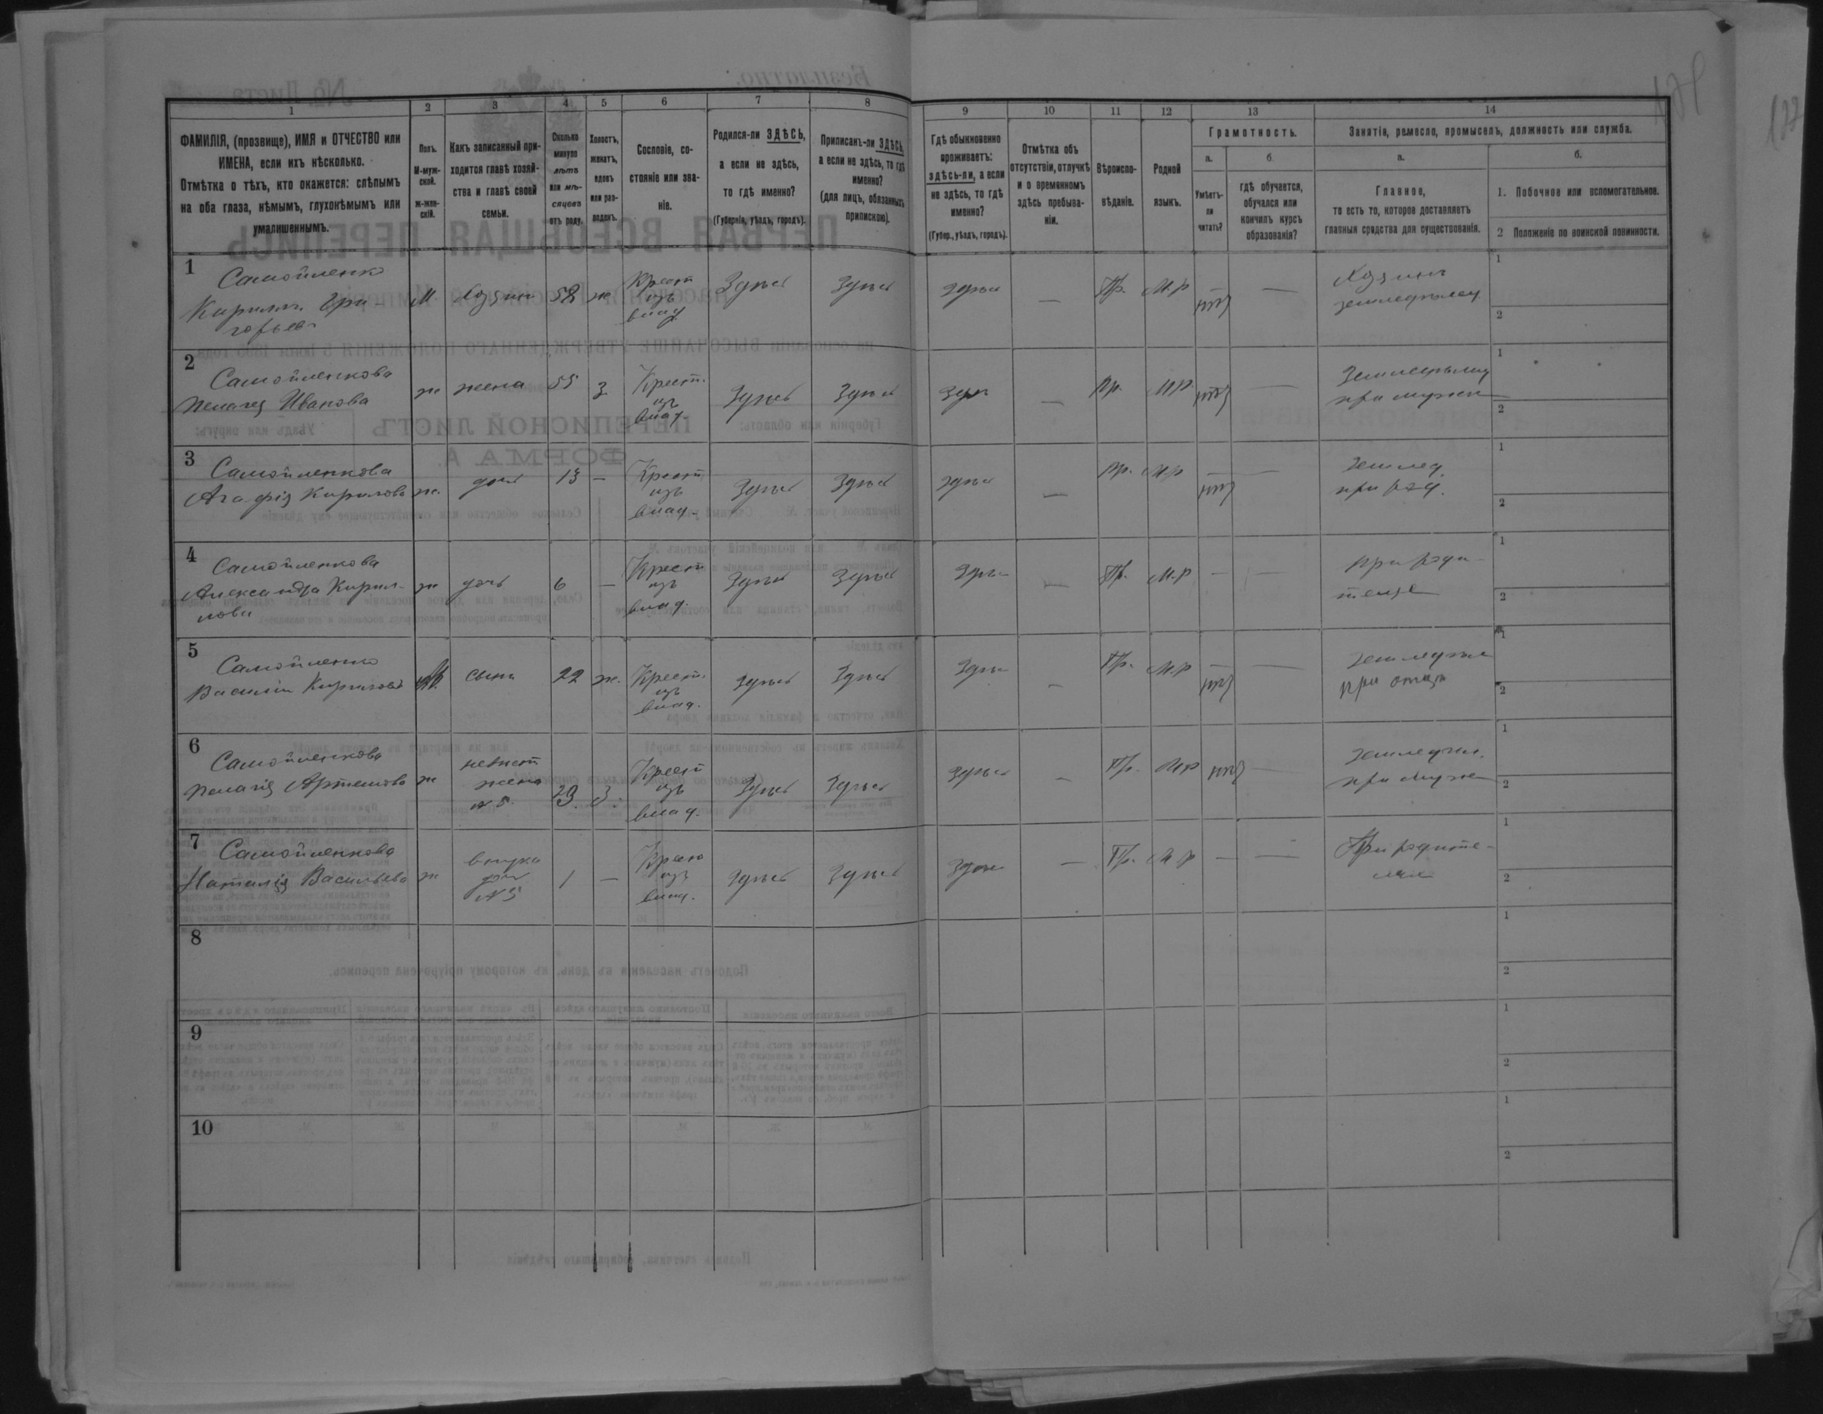 1
2
3
4
5
6
7
8
ФАМИЛІЯ, (прозвище), ИМЯ и ОТЧЕСТВО или
ИМЕНА, если ихъ нѣсколько.
Отмѣтка о тѣхъ, кто окажется: слѣпымъ
на оба глаза, нѣмымъ, глухонѣмымъ или
умалишеннымъ.
Полъ.
М-муж-
ской.
Ж-жен-
скій.
Какъ записанный при-
ходится главѣ хозяй-
ства и главѣ своей
семьи.
Сколько
минуло
лѣтъ
или мѣ-
сяцевъ
отъ роду.
Холостъ,
женатъ,
вдовъ
или раз-
веденъ.
Сословіе, со-
стояніе или зва-
ніе.
Родился-ли ЗДѢСЬ,
а если не здѣсь,
то гдѣ именно?
(Губернія, уѣздъ, городъ).
Приписанъ-ли ЗДѢСЬ,
а если не здѣсь, то гдѣ
именно?
(для лицъ, обязанныхъ
припискою).
9
10
11
12
13
14
Гдѣ обыкновенно
проживаетъ:
здѣсь-ли, а если
не здѣсь, то гдѣ
именно?
(Губер., уѣздъ, городъ).
Отмѣтка объ
отсутствіи, отлучкѣ
и о временномъ
здѣсь пребыва-
ніи.
Вѣроиспо-
вѣданіе.
Родной
языкъ.
Грамотность.
а.
Умѣетъ-
ли
читать?
б.
гдѣ обучается,
обучался или
кончилъ курсъ
образованія?
Занятіе, ремесло, промыселъ, должность или служба.
а.
Главное,
то есть то, которое доставляетъ
главныя средства для существованія.
б.
1. Побочное или вспомогательное.
2 Положеніе по воинской повинности.
1
Самойленко
Кирилъ Гри-
горьев
М хозяин 58 ж Крест из влад Здѣсь Здѣсь здѣсь — Пр. М.р нѣт — Хозяин земледѣлец 1 2
2
Самойленкова
Пелагея Иванова
ж жена 55 з Крест. из влад. Здѣсь Здѣсь Здѣсь — Пр. М.р. нѣт — Земледѣлец при мужѣ 1 2
3
Самойленкова
Агафія Кирилова
ж. дочь 13 — Крест из влад. Здѣсь Здѣсь здѣсь — Пр. М.р — нѣт — Землед. при род. 1 2
4
Самойленкова
Александра Кирил-
лова
ж дочь 6 — Крест из влад. Здѣсь Здѣсь Здѣсь — Пр. М.р — — при роди-
телях 1 2
5
Самойленко
Василий Кирилов
М. сынъ 22 ж. Крест. из влад. Здѣсь Здѣсь Здѣсь — Пр. М.р — нѣт — земледѣл при отцѣ 1 2
6
Самойленкова
Пелагея Артемова
ж невѣст жена №5. 23. з. Крест из влад. Здѣсь Здѣсь Здѣсь — Пр. М.р нѣт — земледѣл. при мужѣ 1 2
7
Самойленкова
Наталія Васильева
ж внука дочь №5 1 — Крест из влад. Здѣсь Здѣсь Здѣсь — Пр. М.р — — При родите-
лях 1 2
8
1
2
9
1
2
10
1
2